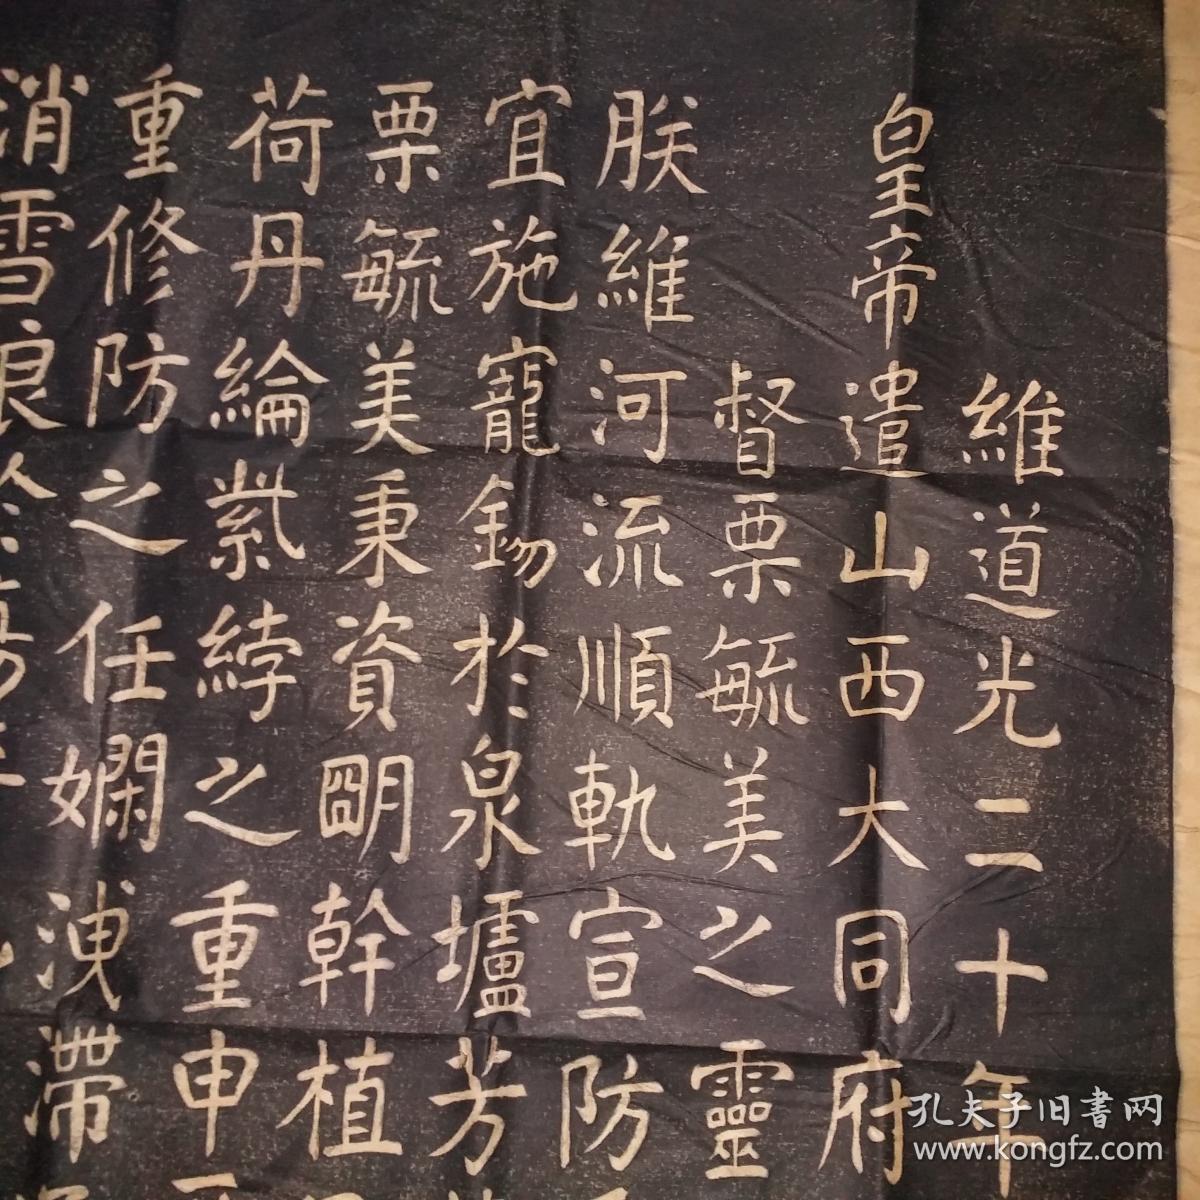 維道光二十年
皇帝遣山西大同府
督栗毓美之靈
朕維河流順軌宣防
宜施寵錫於泉壚芳
栗毓美秉資朙幹植
荷丹綸紫綍之重申
重修防之任嫻洩滯
消雪浪於
孔夫子旧書网
www.kongfz.com